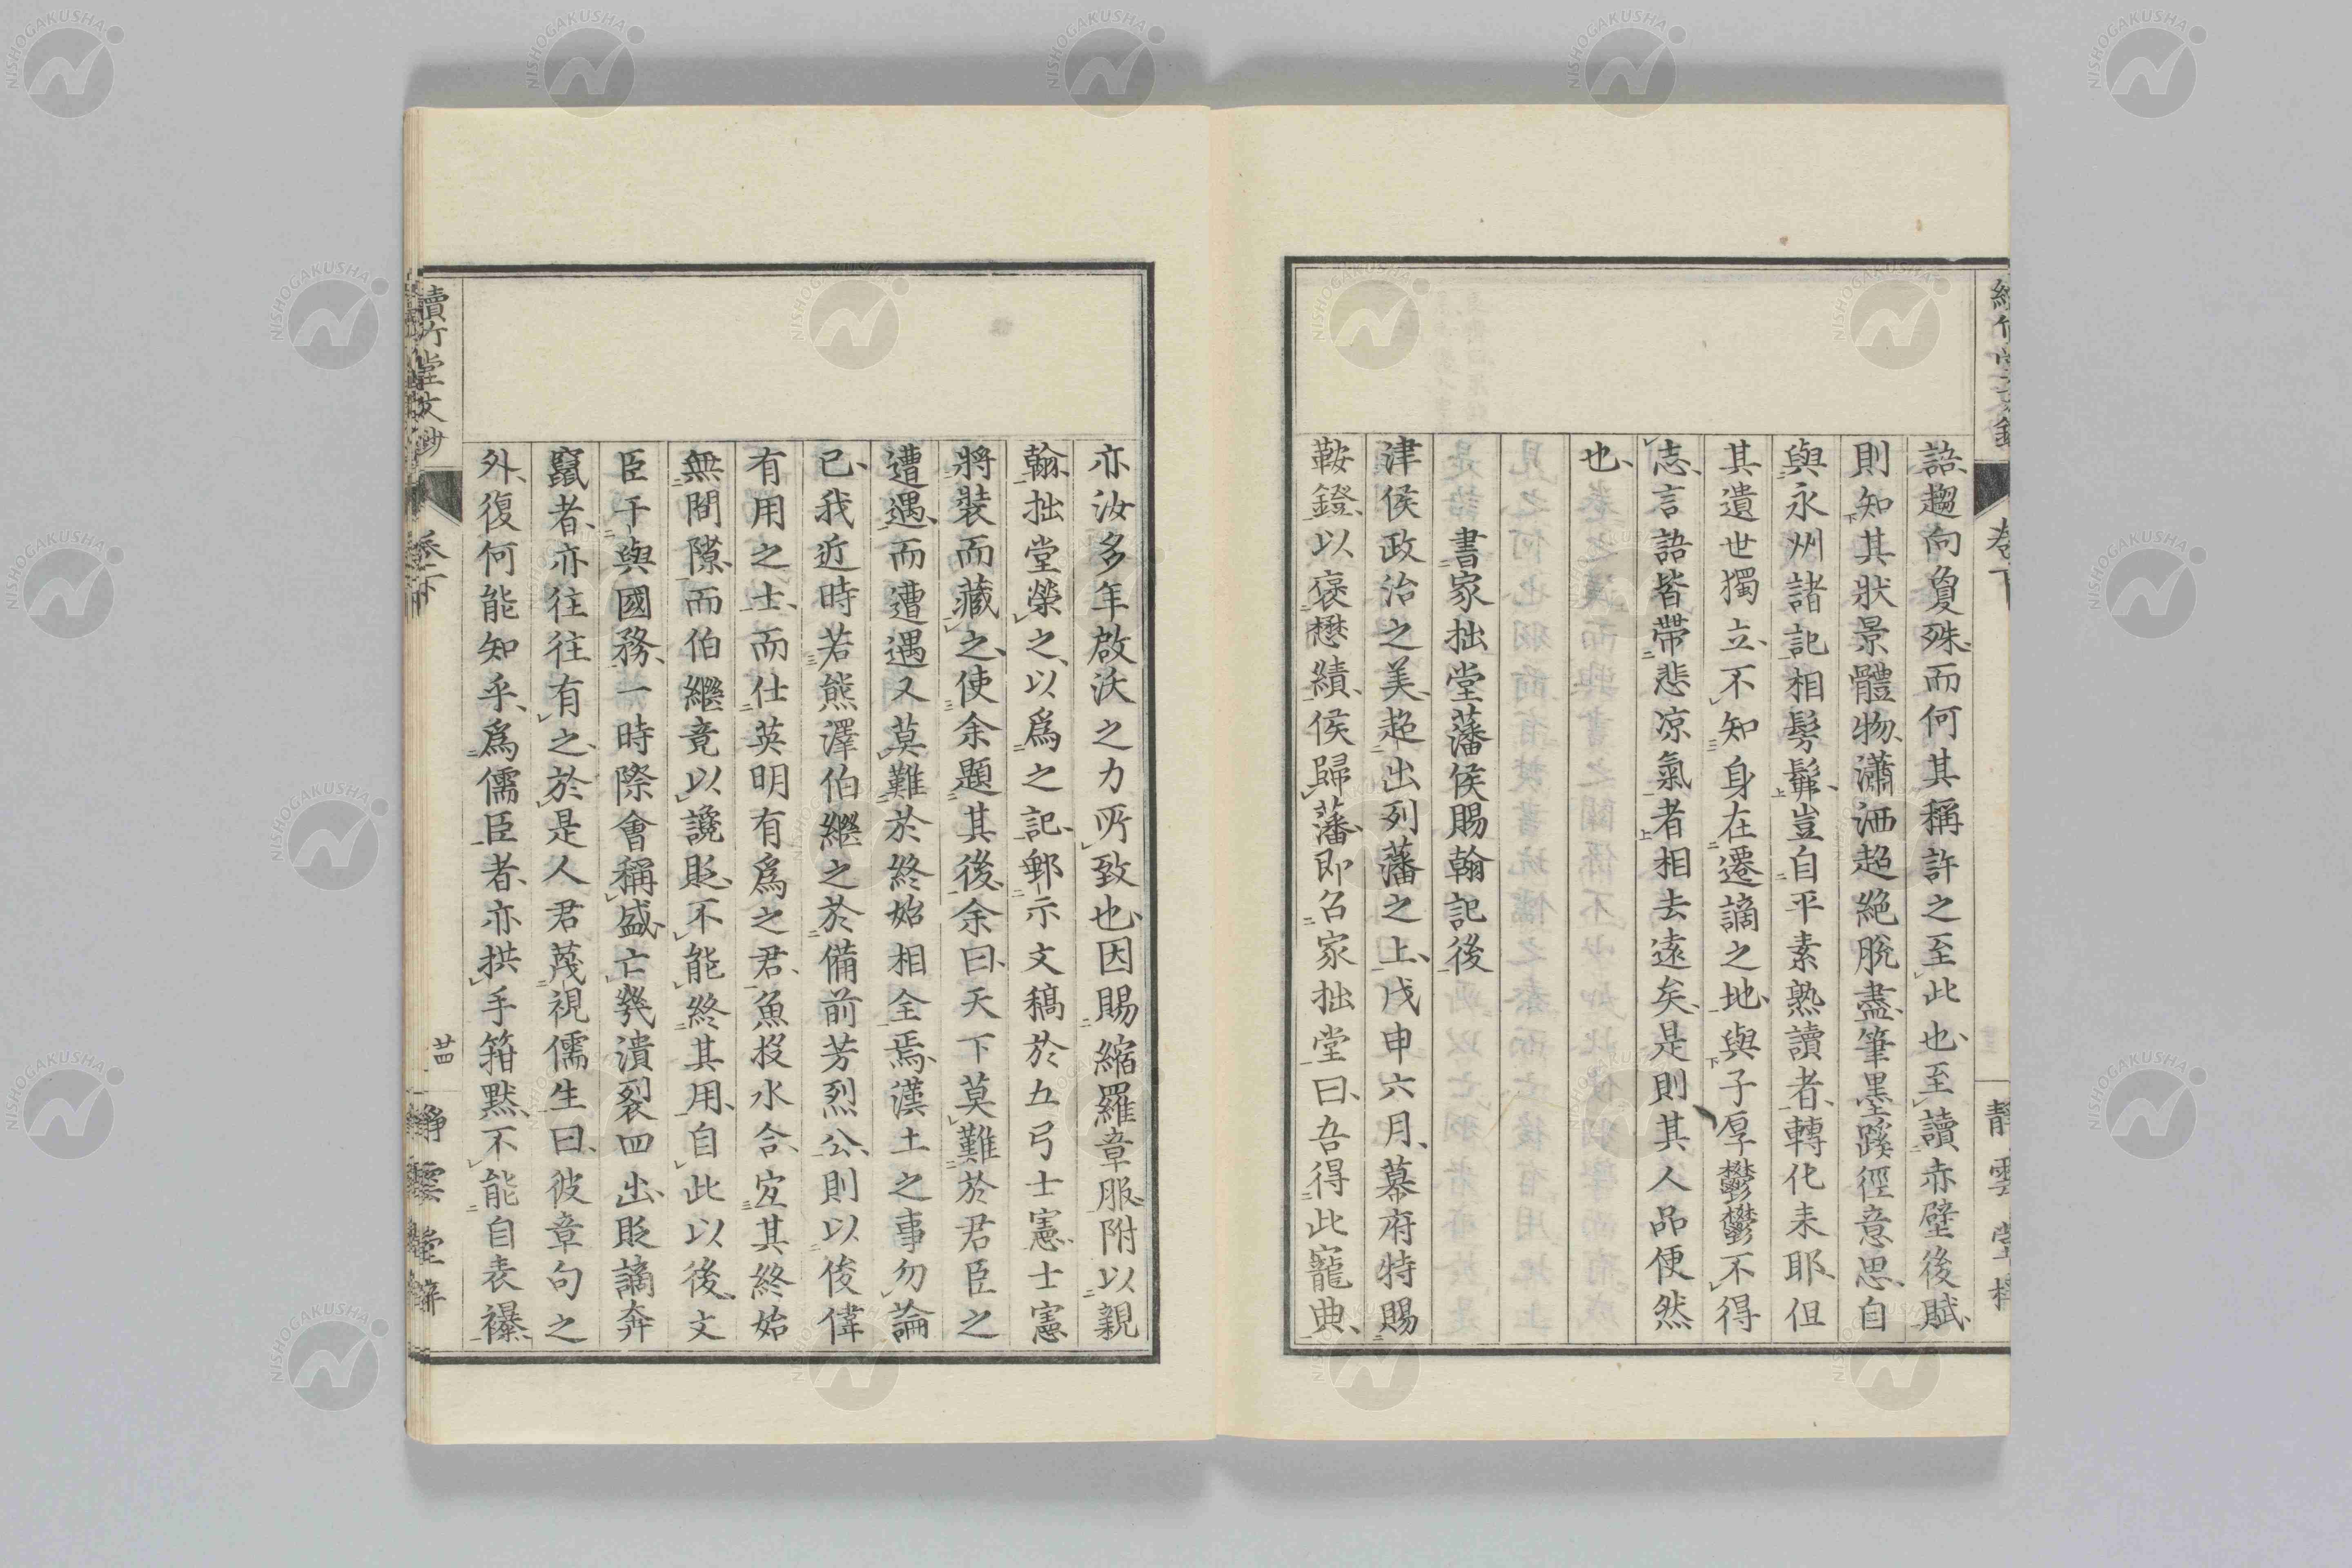 語、趨向夐殊、而何其稱許之至此也、至讀赤壁後賦、
則知其狀景體物、瀟洒超絶、脫盡筆墨蹊徑意思、自
與永州諸記相髣髴、豈自平素熟讀者、轉化来耶、但
其遺世獨立、不知身在遷謫之地、與子厚鬱鬱不得
志、言語皆帶悲凉氣者、相去遠矣、是則其人品便然
也、
書家拙堂藩侯賜翰記後
津侯政治之美、超出列藩之上、戊申六月、幕府特賜
鞍鐙、以襃懋績、侯歸藩、即召家拙堂曰、吾得此寵典、
亦汝多年啟沃之力所致也、因賜縮羅章服、附以親
翰、拙堂榮之、以爲之記、郵示文稿於五弓士憲、士憲
將裝而藏之、使余題其後、余曰、天下莫難於君臣之
遭遇、而遭遇又莫難於終始相全焉、漢土之事勿論
已、我近時若熊澤伯繼之於備前芳烈公、則以俊偉
有用之士、而仕英明有爲之君、魚投水合、宜其終始
無間隙、而伯繼竟以讒貶、不能終其用、自此以後、文
臣干與國務、一時際會稱盛、亡幾潰裂四出、貶謫奔
竄者、亦往往有之、於是人君蔑視儒生曰、彼章句之
外、復何能知乎、爲儒臣者、亦拱手箝默、不能自表襮、
讀竹堂文鈔
卷下
廿四